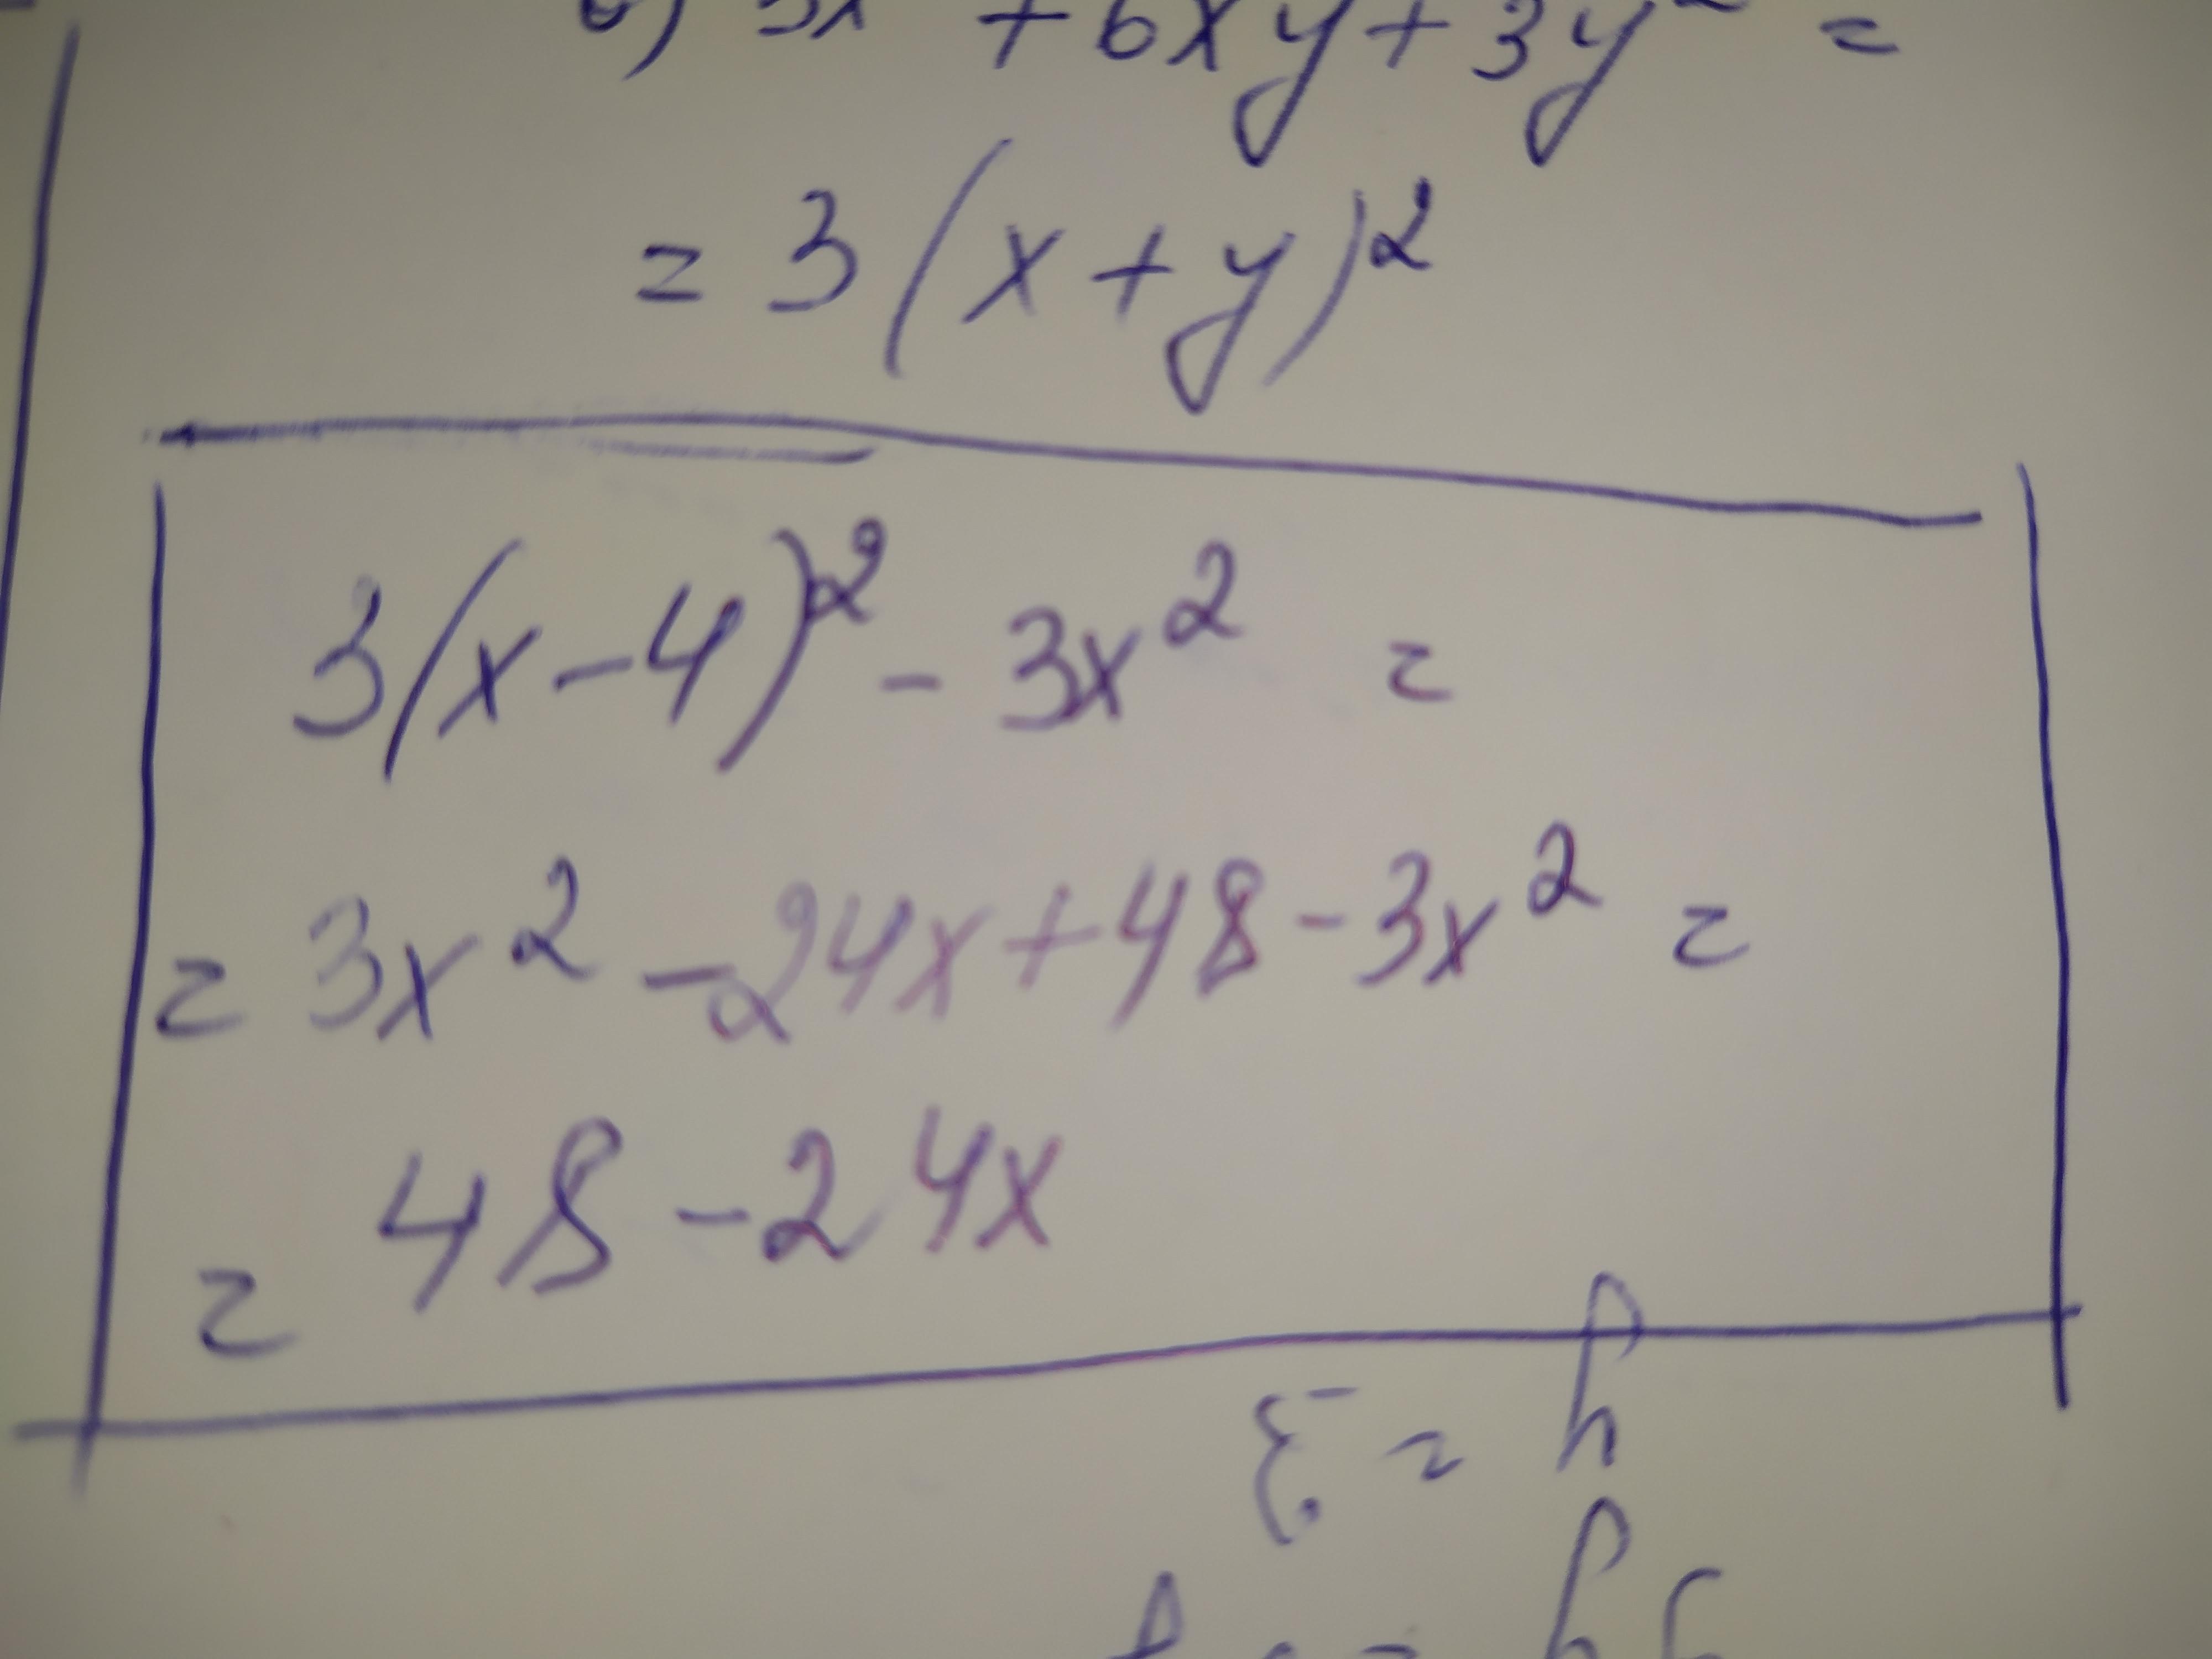 + 6xy + 3y² =
= 3(x + y)²
3(x - 4)² - 3x² =
= 3x² - 24x + 48 - 3x² =
= 48 - 24x